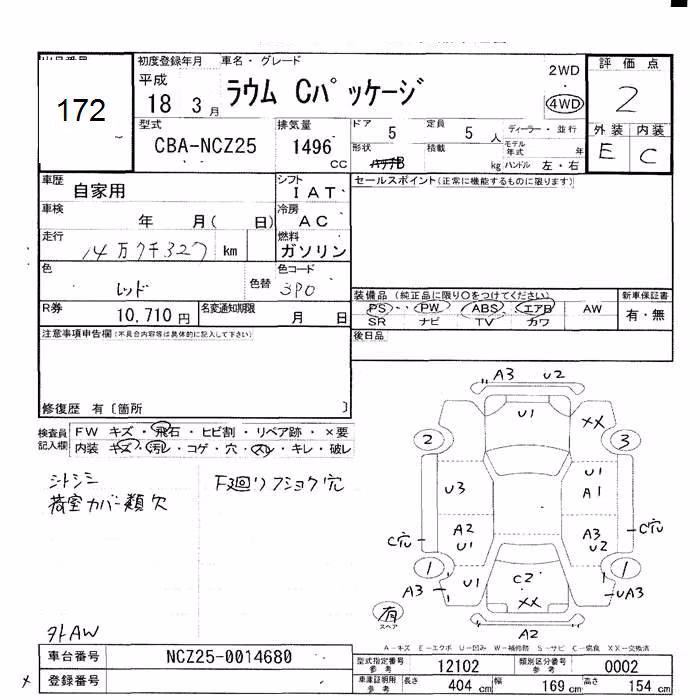 172
初度登録年月
平成
18 3 月
車名・グレード
ラウム Cパッケージ
2WD
4WD
評価点
2
外装 内装
E C
型式
CBA-NCZ25
排気量
1496
CC
ドア
5
定員
5 人
形状
積載
kg
ディーラー・並行
モデル年式 年
ハンドル 左・右
車歴
自家用
シフト
IAT
車検
年 月( 日)
冷房
AC
走行
14万7千327 km
燃料
ガソリン
色
レッド
色替
色コード
3P0
R券
10,710 円
名変通知期限
月 日
セールスポイント(正常に機能するものに限ります)
装備品 (純正品に限り○をつけてください)
PS PW ABS エアB AW
SR ナビ TV カワ
新車保証書
有・無
後日品
注意事項申告欄(不具合内容等は具体的に記入して下さい)
修復歴 有〔箇所 〕
検査員記入欄
FW キズ・飛石・ヒビ割・リペア跡・×要
内装 キズ・汚レ・コゲ・穴・スレ・キレ・破レ
シトシミ
荷室カバー類欠
外AW
A3 U2
U1
XX
2
3
U3
U1
A1
A2
U1
A3
U2
C穴
C穴
1
1
A3
U1
C2
XX
UA3
有
スペア
A2
A-キズ E-エクボ U-凹み W-補修跡 S-サビ C-腐食 XX-交換済
車台番号
NCZ25-0014680
登録番号
型式指定番号
参考
12102
類別区分番号
参考
0002
車庫証明用
参考
長さ
404 cm
幅
169 cm
高さ
154 cm